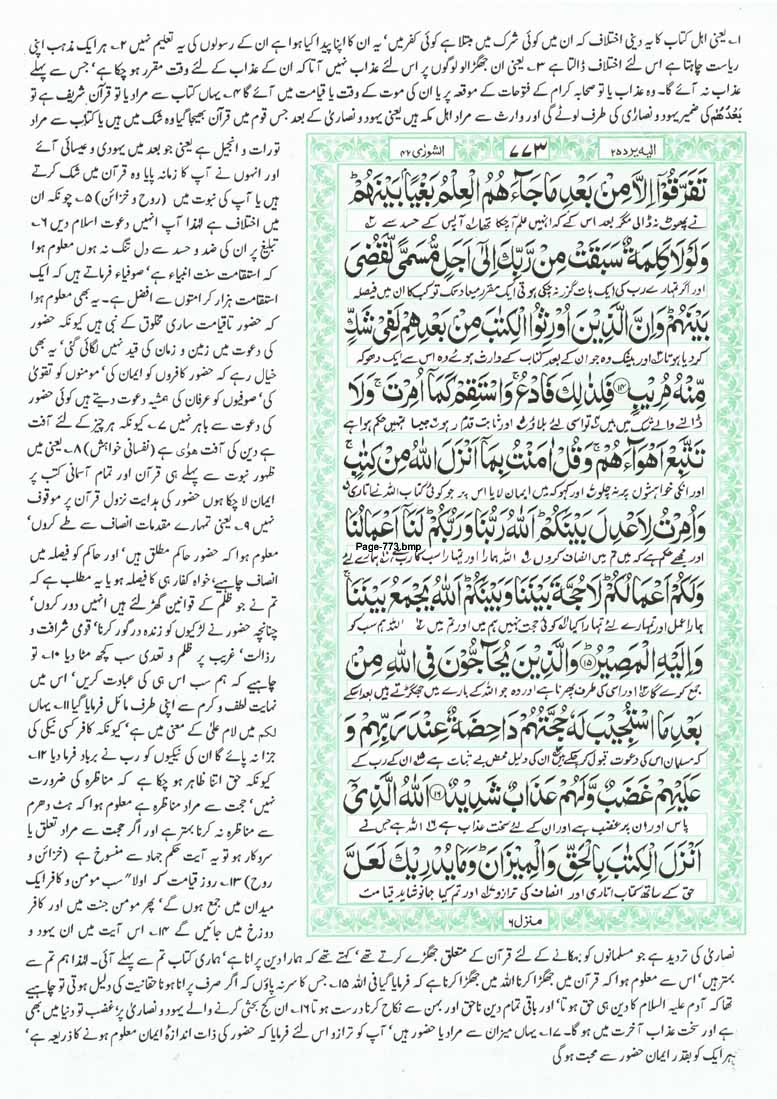 ۱۔ یعنی اہل کتاب کا یہ دینی اختلاف کہ ان میں کوئی شرک میں مبتلا ہے کوئی کفر میں' یہ ان کا اپنا پیدا کیا ہوا ہے ان کے رسولوں کی یہ تعلیم نہیں ۲۔ ہر ایک مذہب اپنی
ریاست چاہتا ہے اس لئے اختلاف ڈالتا ہے ۳۔ یعنی ان جھگڑالو لوگوں پر اس لئے عذاب نہیں آتا کہ ان کے عذاب کے لئے وقت مقرر ہو چکا ہے' جس سے پہلے
عذاب نہ آئے گا۔ وہ عذاب یا تو صحابہ کرام کے فتوحات کے موقعہ پر یا ان کی موت کے وقت یا قیامت میں آئے گا ۴۔ یہاں کتاب سے مراد یا تو قرآن شریف ہے تو
بَعْدُهُمْ کی ضمیر یہود و نصاریٰ کی طرف لوٹے گی اور وارث سے مراد اہل مکہ ہیں یعنی یہود و نصاریٰ کے بعد جس قوم میں قرآن بھیجا گیا وہ شک میں ہیں یا کتاب سے مراد
تورات و انجیل ہے یعنی جو بعد میں یہودی و عیسائی آئے
اور انہوں نے آپ کا زمانہ پایا وہ قرآن میں شک کرتے
ہیں یا آپ کی نبوت میں (روح و خزائن) ۵۔ چونکہ ان
میں اختلاف ہے لہٰذا آپ انہیں دعوت اسلام دیں ۶۔
تبلیغ پر ان کی ضد و حسد سے دل تنگ نہ ہوں معلوم ہوا
کہ استقامت سنت انبیاء ہے' صوفیاء فرماتے ہیں کہ ایک
استقامت ہزار کرامتوں سے افضل ہے۔ یہ بھی معلوم ہوا
کہ حضور تاقیامت ساری مخلوق کے نبی ہیں کیونکہ حضور
کی دعوت میں زمین و زمان کی قید نہیں لگائی گئی' یہ بھی
خیال رہے کہ حضور کافروں کو ایمان کی' مومنوں کو تقویٰ
کی' صوفیوں کو عرفان کی ہمیشہ دعوت دیتے ہیں کوئی حضور
کی دعوت سے باہر نہیں ۷۔ کیونکہ ہر چیز کے لئے آفت
ہے دین کی آفت ھویٰ ہے (نفسانی خواہش) ۸۔ یعنی میں
ظہور نبوت سے پہلے ہی قرآن اور تمام آسمانی کتب پر
ایمان لا چکا ہوں حضور کی ہدایت نزول قرآن پر موقوف
نہیں ۹۔ یعنی تمہارے مقدمات انصاف سے طے کروں'
معلوم ہوا کہ حضور حاکم مطلق ہیں' اور حاکم کو فیصلہ میں
انصاف چاہیے' خواہ کفار ہی کا فیصلہ ہو یا یہ مطلب ہے کہ
تم نے جو ظلم کے قوانین گھڑ لئے ہیں انہیں دور کروں'
چنانچہ حضور نے لڑکیوں کو زندہ درگور کرنا' قومی شرافت و
رذالت' غریب پر ظلم و تعدی سب کچھ مٹا دیا ۱۰۔ تو
چاہیے کہ ہم سب اس ہی کی عبادت کریں' اس میں
نہایت لطف و کرم سے اپنی طرف مائل فرمایا گیا ۱۱۔ یہاں
لکم میں لام علیٰ کے معنی میں ہے' کیونکہ کافر کسی نیکی کی
جزا نہ پائے گا ان کی نیکیوں کو رب نے برباد فرما دیا ۱۲۔
کیونکہ حق اتنا ظاہر ہو چکا ہے کہ مناظرہ کی ضرورت
نہیں' حجت سے مراد مناظرہ ہے معلوم ہوا کہ ہٹ دھرم
سے مناظرہ نہ کرنا بہتر ہے اور اگر حجت سے مراد تعلق یا
سروکار ہو تو یہ آیت حکم جہاد سے منسوخ ہے (خزائن و
روح) ۱۳۔ روز قیامت کہ اولاً سب مومن و کافر ایک
میدان میں جمع ہوں گے' پھر مومن جنت میں اور کافر
دوزخ میں جائیں گے ۱۴۔ اس آیت میں ان یہود و
الیہ یرد ۲۵
۷۷۳
الشوریٰ ۴۲
تَفَرَّقُوْۤا اِلَّا مِنْۢ بَعْدِ مَا جَآءَهُمُ الْعِلْمُ بَغْیًۢا بَیْنَهُمْ ؕ
نے پھوٹ نہ ڈالی مگر بعد اس کے کہ انہیں علم آچکا تھا آپس کے حسد سے
وَ لَوْ لَا كَلِمَةٌ سَبَقَتْ مِنْ رَّبِّكَ اِلٰۤى اَجَلٍ مُّسَمًّى لَّقُضِیَ
اور اگر تمہارے رب کی ایک بات گزر نہ چکی ہوتی ایک مقرر میعاد تک تو کب کا ان میں فیصلہ
بَیْنَهُمْ ؕ وَ اِنَّ الَّذِیْنَ اُوْرِثُوا الْكِتٰبَ مِنْۢ بَعْدِهِمْ لَفِیْ شَكٍّ
کر دیا ہوتا اور بیشک وہ جو ان کے بعد کتاب کے وارث ہوئے وہ اس سے ایک دھوکہ
مِّنْهُ مُرِیْبٍ ۱۴ فَلِذٰلِكَ فَادْعُ ۚ وَ اسْتَقِمْ كَمَاۤ اُمِرْتَ ۚ وَ لَا
ڈالنے والے شک میں ہیں تو اسی لئے بلاؤ اور ثابت قدم رہو جیسا تمہیں حکم ہوا ہے
تَتَّبِعْ اَهْوَآءَهُمْ ۚ وَ قُلْ اٰمَنْتُ بِمَاۤ اَنْزَلَ اللّٰهُ مِنْ كِتٰبٍ ۚ
اور انکی خواہشوں پر نہ چلو اور کہو کہ میں ایمان لایا اس پر جو کوئی کتاب اللہ نے اتاری
وَ اُمِرْتُ لِاَعْدِلَ بَیْنَكُمْ ؕ اَللّٰهُ رَبُّنَا وَ رَبُّكُمْ ؕ لَنَاۤ اَعْمَالُنَا
Page-773.bmp
اور مجھے حکم ہے کہ میں تم میں انصاف کروں اللہ ہمارا اور تمہارا سب کا رب ہے ہمارے لئے
وَ لَكُمْ اَعْمَالُكُمْ ؕ لَا حُجَّةَ بَیْنَنَا وَ بَیْنَكُمْ ؕ اَللّٰهُ یَجْمَعُ بَیْنَنَا ۚ
ہمارا عمل اور تمہارے لئے تمہارا کیا کوئی حجت نہیں ہم میں اور تم میں اللہ ہم سب کو
وَ اِلَیْهِ الْمَصِیْرُ ۱۵ وَ الَّذِیْنَ یُحَآجُّوْنَ فِی اللّٰهِ مِنْۢ
جمع کرے گا اور اسی کی طرف پھرنا ہے اور وہ جو اللہ کے بارے میں جھگڑتے ہیں بعد اسکے
بَعْدِ مَا اسْتُجِیْبَ لَهٗ حُجَّتُهُمْ دَاحِضَةٌ عِنْدَ رَبِّهِمْ وَ
کہ مسلمان اس کی دعوت قبول کر چکے ہیں ان کی دلیل محض بے ثبات ہے ان کے رب کے
عَلَیْهِمْ غَضَبٌ وَّ لَهُمْ عَذَابٌ شَدِیْدٌ ۱۶ اَللّٰهُ الَّذِیْۤ
پاس اور ان پر غضب ہے اور ان کے لئے سخت عذاب ہے اللہ ہے جس نے
اَنْزَلَ الْكِتٰبَ بِالْحَقِّ وَ الْمِیْزَانَ ؕ وَ مَا یُدْرِیْكَ لَعَلَّ
حق کے ساتھ کتاب اتاری اور انصاف کی ترازو اور تم کیا جانو شاید قیامت
منزل ۶
نصاریٰ کی تردید ہے جو مسلمانوں کو بہکانے کے لئے قرآن کے متعلق جھگڑے کرتے تھے' کہتے تھے کہ ہمارا دین پرانا ہے' ہماری کتاب تم سے پہلے آئی۔ لہٰذا ہم تم سے
بہتر ہیں' اس سے معلوم ہوا کہ قرآن میں جھگڑا کرنا اللہ میں جھگڑا کرنا ہے کہ فرمایا گیا فی اللہ ۱۵۔ جس کا سر نہ پاؤں کہ اگر صرف پرانا ہونا حقانیت کی دلیل ہوتی تو چاہیے
تھا کہ آدم علیہ السلام کا دین ہی حق ہوتا' اور باقی تمام دین ناحق اور بہن سے نکاح کرنا درست ہوتا ۱۶۔ ان کج بحثی کرنے والے یہود و نصاریٰ پر' غضب تو دنیا میں بھی
ہے اور سخت عذاب آخرت میں ہو گا۔ ۱۷۔ یہاں میزان سے مراد یا حضور ہیں' آپ کو ترازو اس لئے فرمایا کہ حضور کی ذات اندازۂ ایمان معلوم ہونے کا ذریعہ ہے'
ہر ایک کو بقدر ایمان حضور سے محبت ہو گی